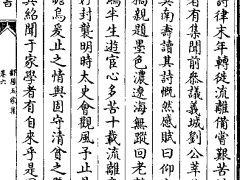 詩律末年轉徙流離備嘗艱苦
者有集聞前叅議義城劉公菶
其南壽讀其詩慨然感賦曰仰
撝親題墨色濃遼海無蹤回老
端半生遊宦心多苦十載流離
封封襲明時太史會觀風予止共
瞻烏爰止之情與固守清貧之
與紹聞于家學者有自來乎是